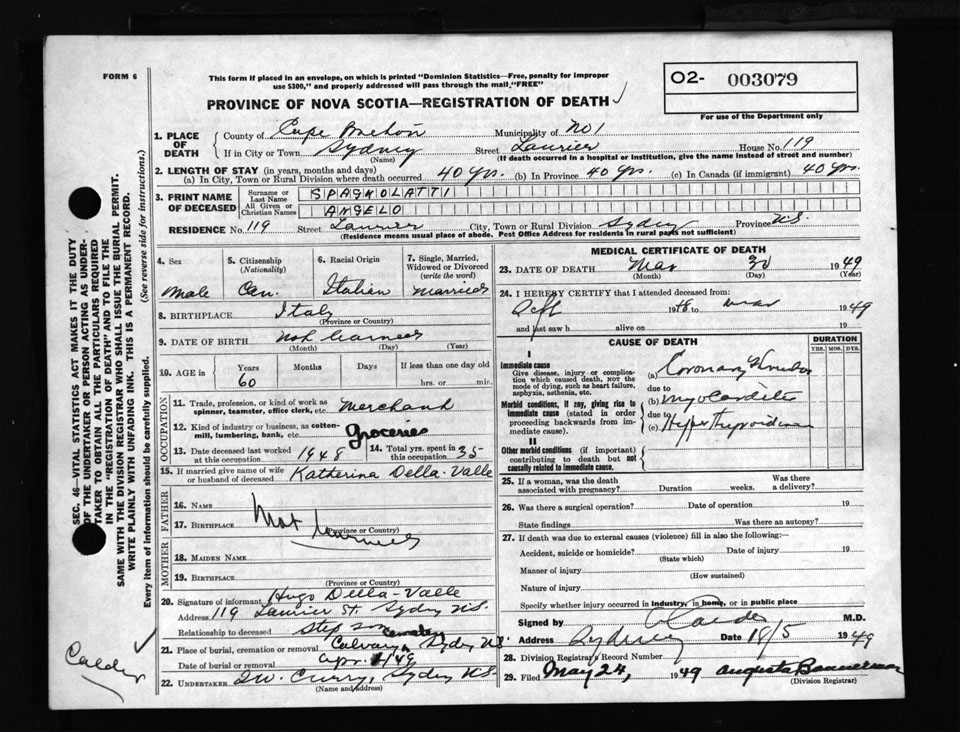 FORM 6
This form if placed in an envelope, on which is printed "Dominion Statistics—Free, penalty for improper
use $300," and properly addressed will pass through the mail, "FREE"
PROVINCE OF NOVA SCOTIA—REGISTRATION OF DEATH
O2- 003079
For use of the Department only
1. PLACE OF DEATH
County of Cape Breton Municipality of No 1
If in City or Town Sydney Street Laurier House No. 119
(Name) (If death occurred in a hospital or institution, give the name instead of street and number)
2. LENGTH OF STAY (in years, months and days)
(a) In City, Town or Rural Division where death occurred 40 yrs. (b) In Province 40 yrs. (c) In Canada (if immigrant) 40 yrs.
3. PRINT NAME OF DECEASED
Surname or Last Name SPAGKOLATTI
All Given or Christian Names ANGELO
RESIDENCE No. 119 Street Laurier City, Town or Rural Division Sydney Province N.S.
(Residence means usual place of abode. Post Office Address for residents in rural parts not sufficient)
4. Sex Male
5. Citizenship (Nationality) Can.
6. Racial Origin Italian
7. Single, Married, Widowed or Divorced (write the word) Married
8. BIRTHPLACE Italy
(Province or Country)
9. DATE OF BIRTH not learned
(Month) (Day) (Year)
10. AGE in Years 60 Months Days If less than one day old hrs. or min.
OCCUPATION
11. Trade, profession, or kind of work as spinner, teamster, office clerk, etc. Merchant
12. Kind of industry or business, as cotton-mill, lumbering, bank, etc. Groceries
13. Date deceased last worked at this occupation 1948
14. Total yrs. spent in this occupation 35
15. If married give name of wife or husband of deceased Katherina Della-Valle
FATHER
16. NAME
17. BIRTHPLACE Not learned
(Province or Country)
MOTHER
18. MAIDEN NAME
19. BIRTHPLACE
(Province or Country)
20. Signature of informant Hugo Della-Valle
Address 119 Laurier St. Sydney N.S.
Relationship to deceased step son
21. Place of burial, cremation or removal Calvary Sydney N.S.
Date of burial or removal Apr. 1/49
22. UNDERTAKER Curry, Sydney N.S.
(Name and address)
MEDICAL CERTIFICATE OF DEATH
23. DATE OF DEATH Mar 30 1949
(Month) (Day)
24. I HEREBY CERTIFY that I attended deceased from:
Oct 1948 to Mar 1949
and last saw h alive on 19
CAUSE OF DEATH
DURATION
YRS. MOS. DYS.
I
Immediate cause
Give disease, injury or complication which caused death, NOT the mode of dying, such as heart failure, asphyxia, asthenia, etc.
(a) Coronary
due to
Morbid conditions, if any, giving rise to immediate cause (stated in order proceeding backwards from immediate cause).
(b) Myocarditis
due to
(c) Hyperthyroidism
II
Other morbid conditions (if important) contributing to death but NOT causally related to immediate cause.
25. If a woman, was the death associated with pregnancy? Duration weeks. Was there a delivery?
26. Was there a surgical operation? Date of operation 19
State findings Was there an autopsy?
27. If death was due to external causes (violence) fill in also the following:—
Accident, suicide or homicide? Date of injury 19
(State which)
Manner of injury
(How sustained)
Nature of injury
Specify whether injury occurred in industry, in home, or in public place
Signed by M.D.
Address Sydney Date 18/5 1949
28. Division Registrar's Record Number
29. Filed May 24, 1949 Augusta Bannerman
(Division Registrar)
SEC. 46—VITAL STATISTICS ACT MAKES IT THE DUTY
OF THE UNDERTAKER OR PERSON ACTING AS UNDER-
TAKER TO OBTAIN ALL THE PARTICULARS REQUIRED
IN THE "REGISTRATION OF DEATH" AND TO FILE THE
SAME WITH THE DIVISION REGISTRAR WHO SHALL ISSUE THE BURIAL PERMIT.
WRITE PLAINLY WITH UNFADING INK. THIS IS A PERMANENT RECORD.
Every item of information should be carefully supplied. (See reverse side for instructions.)